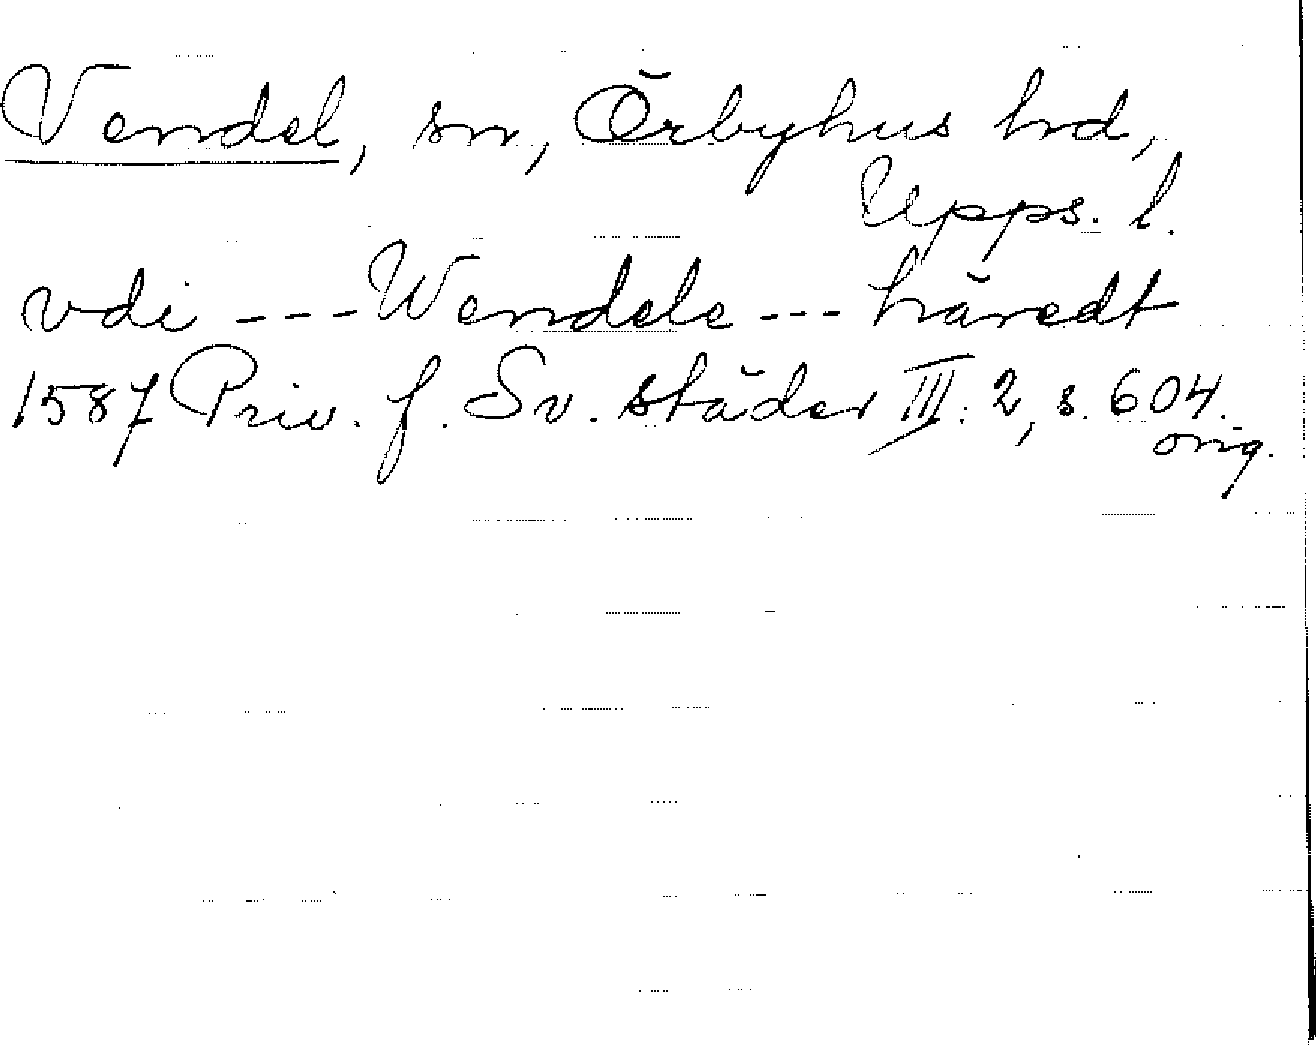 Vendel, sn, Örbyhus hrd,
Upps. l.
vdi --- Wendele --- häredt
1587 Priv. f. Sv. städer III: 2, s. 604.
orig.